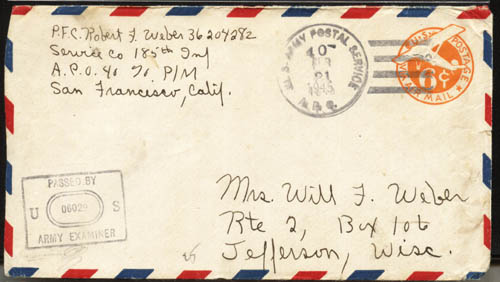 P.F.C. Robert F. Weber 36204282
Service Co 185th Inf
A.P.O. 40 % P/M
San Francisco, Calif.
U.S. ARMY POSTAL SERVICE
40
21
A.P.O.
U.S. POSTAGE
6¢
VIA AIR MAIL
PASSED BY
U 06029 S
ARMY EXAMINER
Mrs. Will F. Weber
Rte 2, Box 106
Jefferson, Wisc.